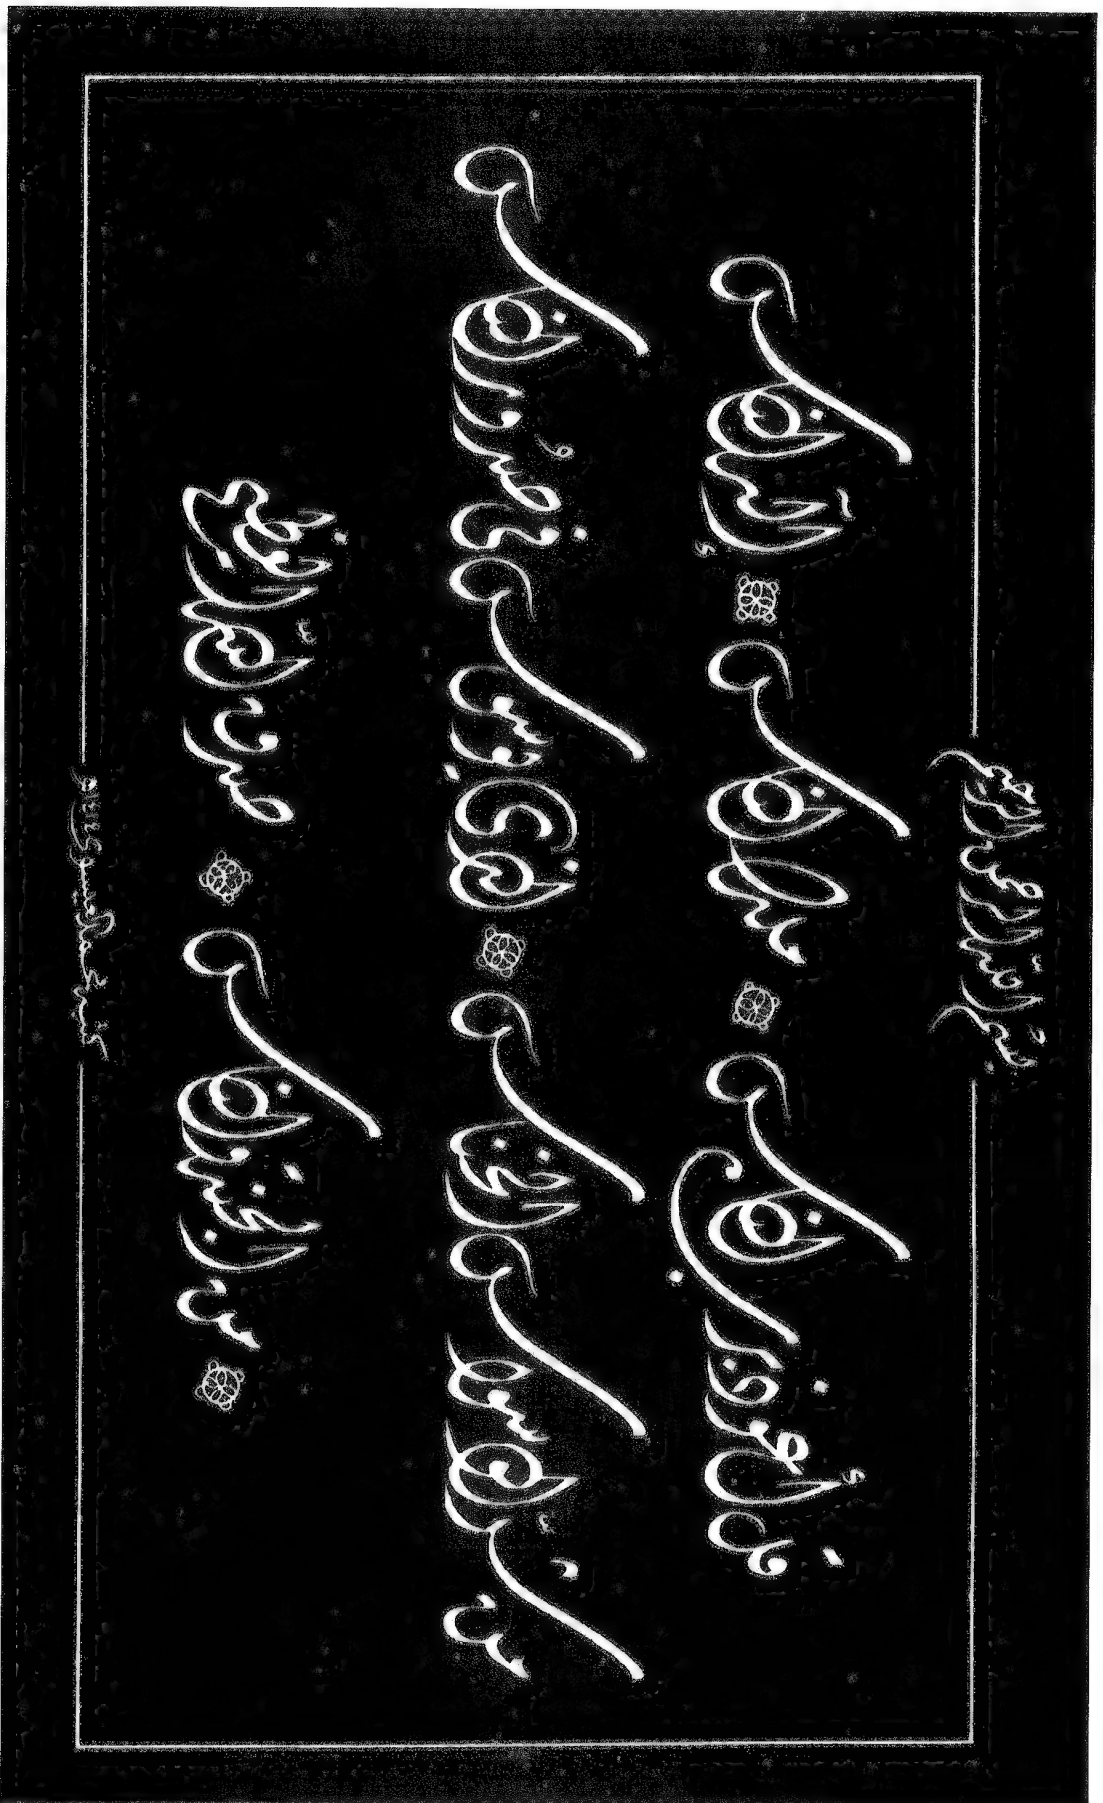 بسم الله الرحمن الرحيم
قل أعوذ برب الناس ملك الناس إله الناس
من شر الوسواس الخناس الذي يوسوس في صدور الناس
من الجنة والناس صدق الله العظيم